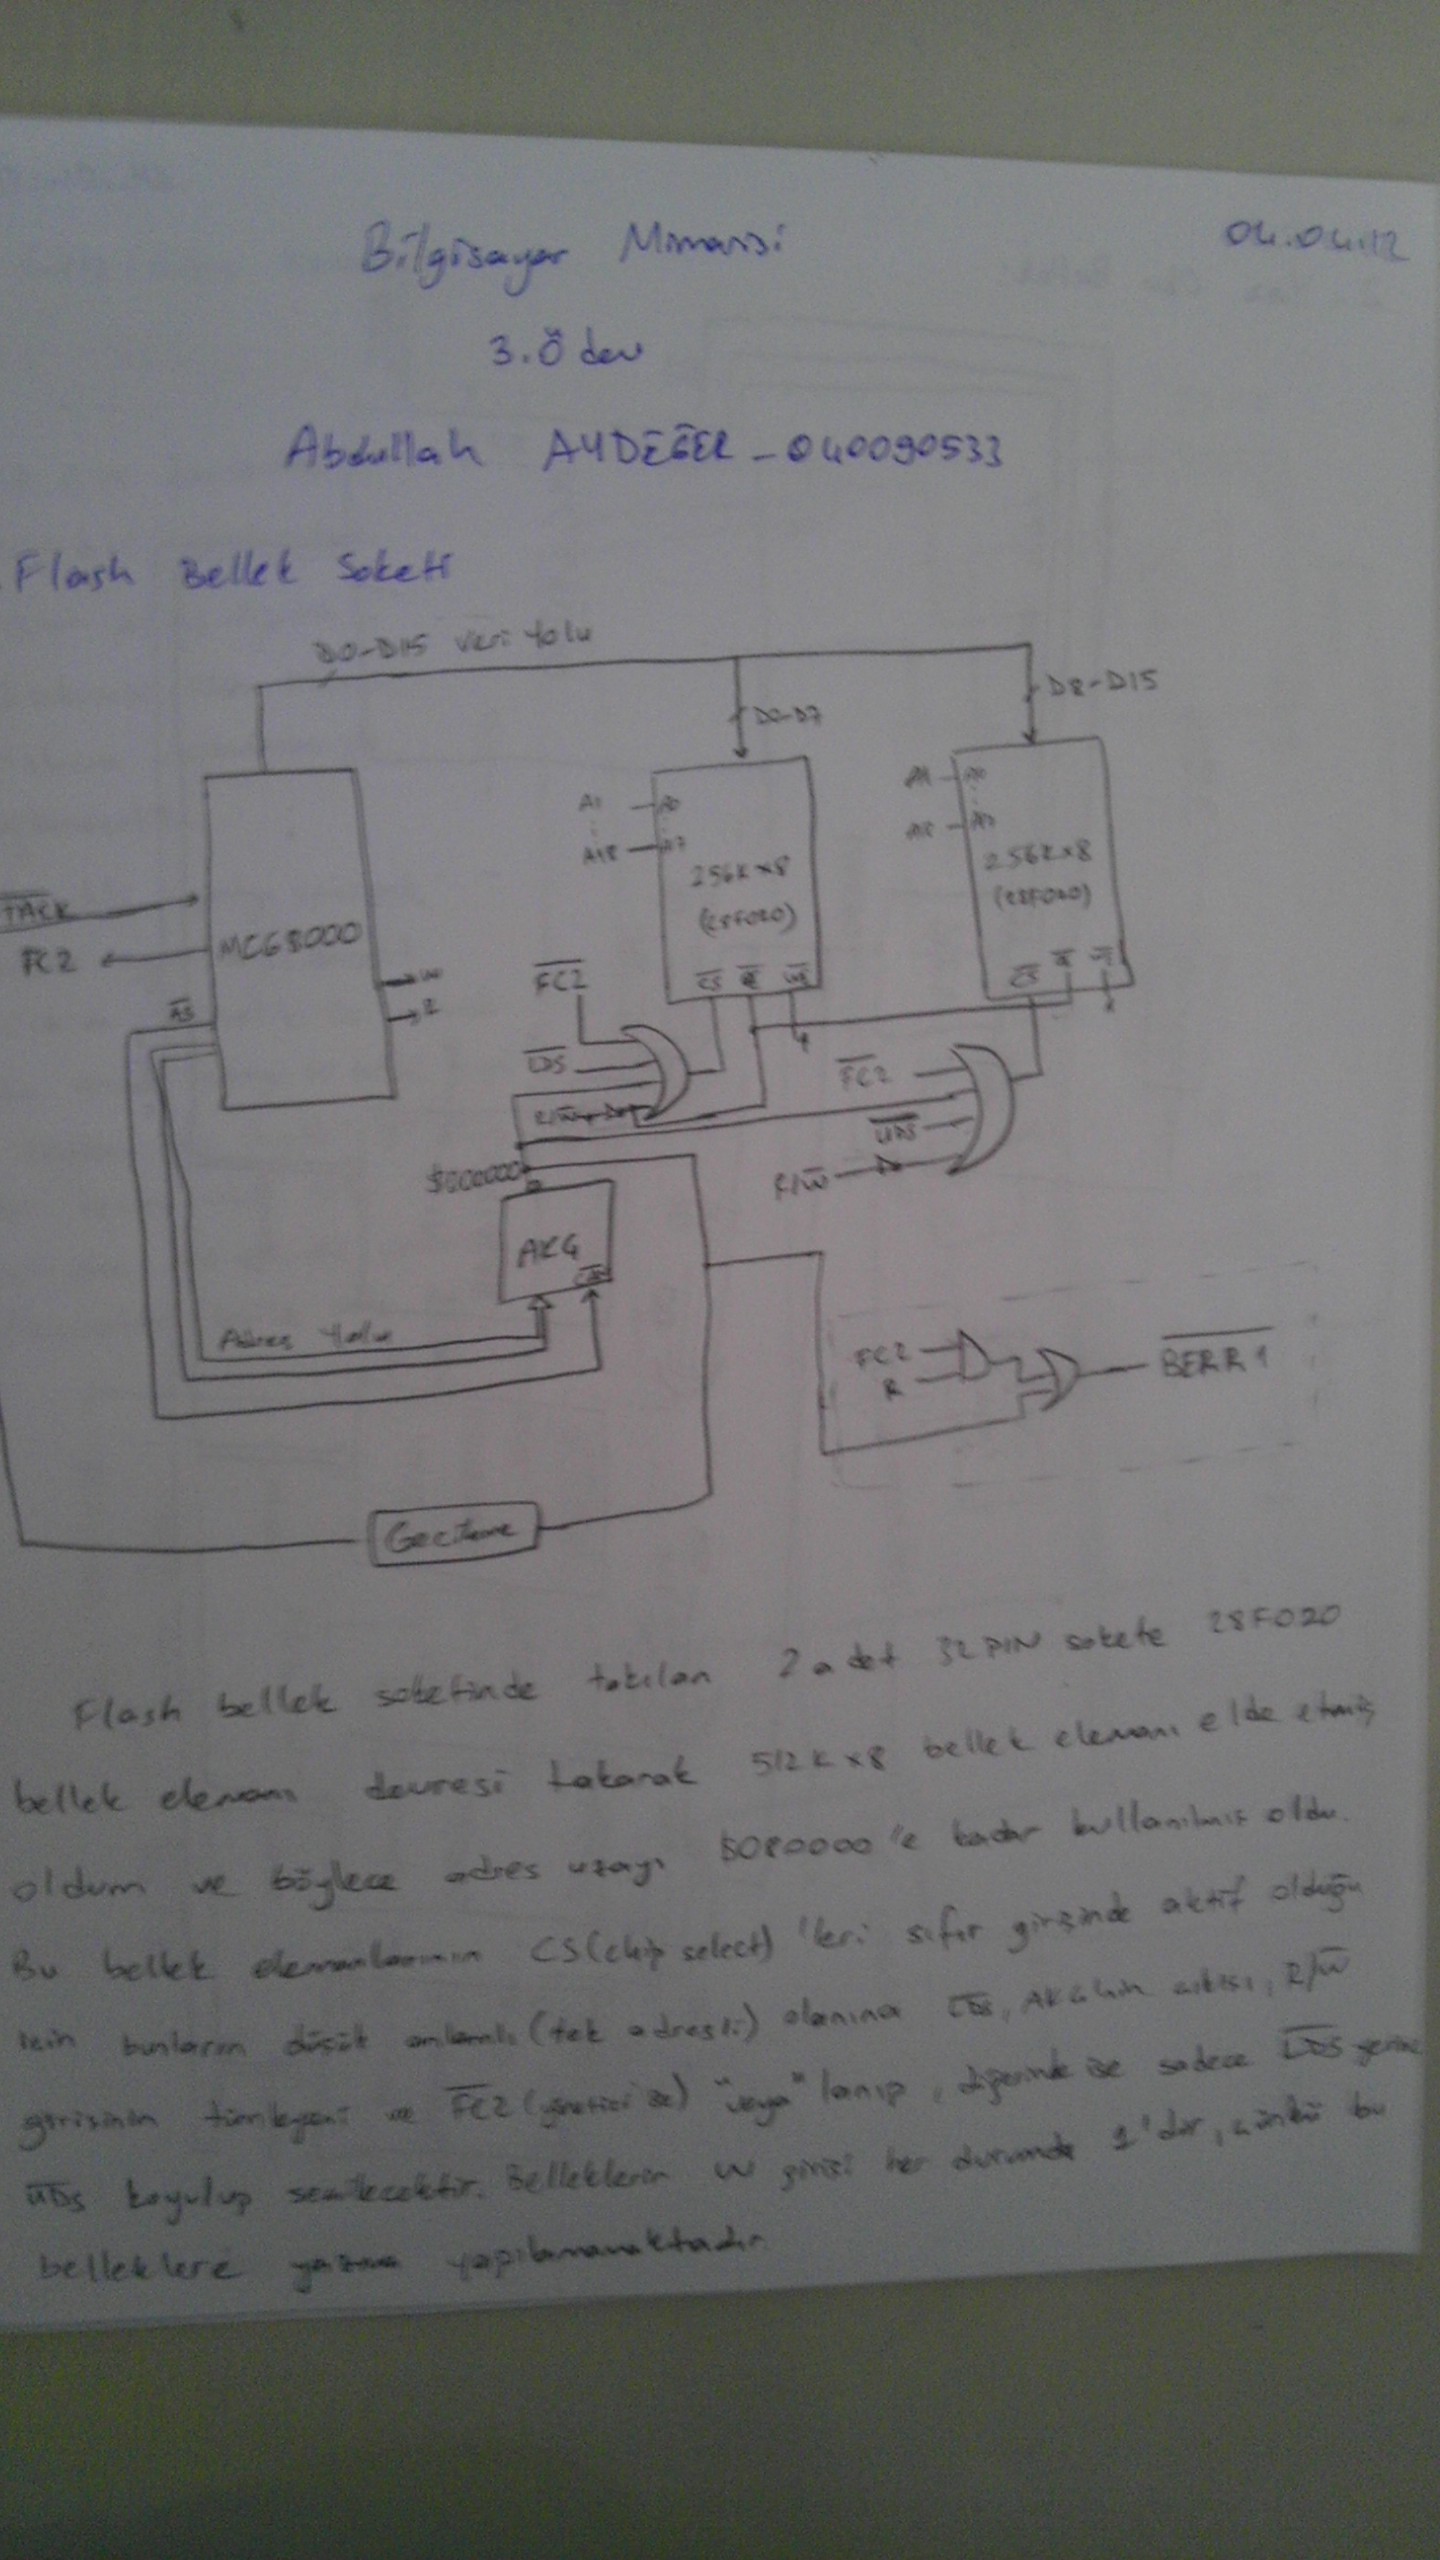 Bilgisayar Mimarisi
04.04.12
3.Ödev
Abdullah AYDEĞER - 040090533
Flash Bellek Soketi
D0-D15 Veri Yolu
D8-D15
D0-D7
A1 A0
A1 A0
A18
A18
256K x 8
256K x 8
(28F020)
(28F020)
MC68000
FC2
W
R
AS
CS R
CS R
FC2
LDS
FC2
UDS
R/W
$000000
AKG
CS
Adres Yolu
FC2
R
BERR1
Geciktirme
Flash bellek soketinde takılan 2 adet 32 PIN sokete 28F020
bellek elemanı devresi takarak 512K x 8 bellek elemanı elde etmiş
oldum ve böylece adres uzayı 'e kadar kullanılmış oldu.
Bu bellek elemanlarının CS(chip select) 'leri sıfır girişinde aktif olduğu
için bunların düşük anlamlı (tek adresli) olanına LDS, AKG'nin çıkışı, R/W
girişinin tümleyeni ve FC2 (yönetici ise) "veya"lanıp, diğerinde ise sadece LDS yerine
UDS koyulup seçilecektir. Belleklerin W girişi her durumda 1'dir, çünkü bu
belleklere yazma yapılamamaktadır.